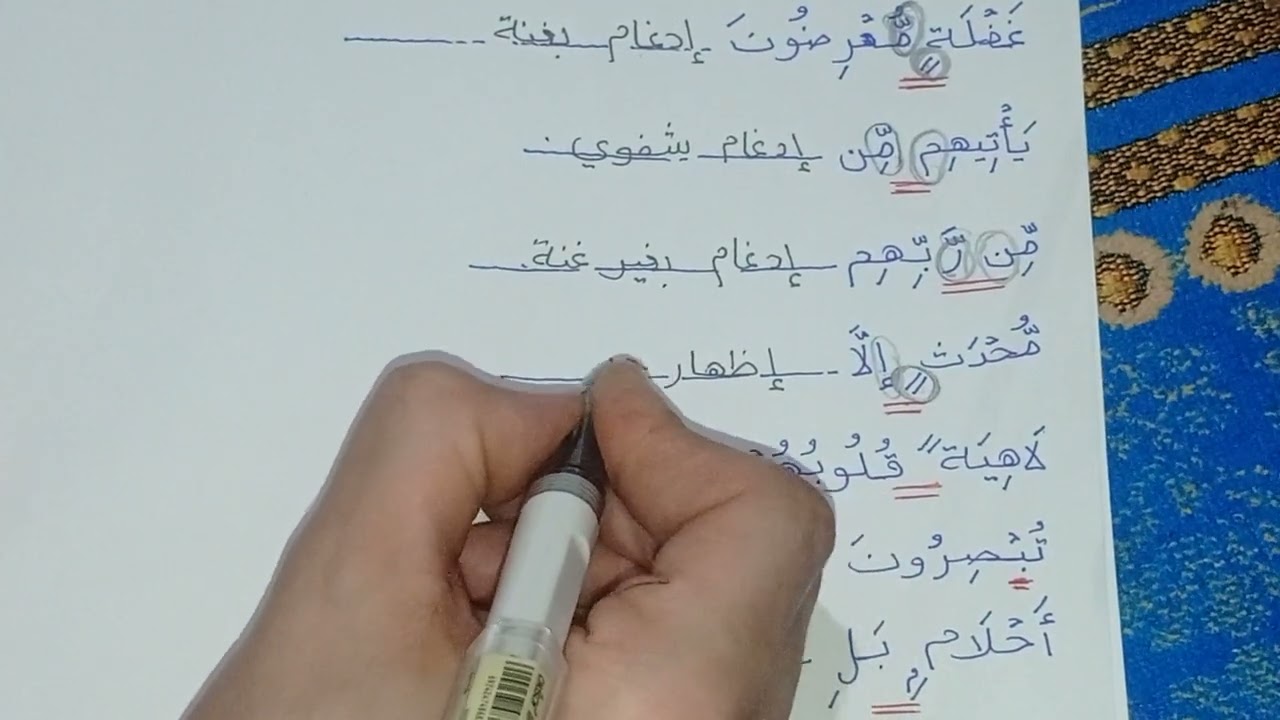 غَفْلَةٍ مُّعْرِضُونَ إدغام بغنة
يَأْتِيهِم مِّن إدغام شفوي
مِّن رَّبِّهِم إدغام بغير غنة
مُّحْدَثٍ إِلَّا إظهار
لَاهِيَةً قُلُوبُهُ
تُبْصِرُونَ
أَحْلَامٍ بَلِ